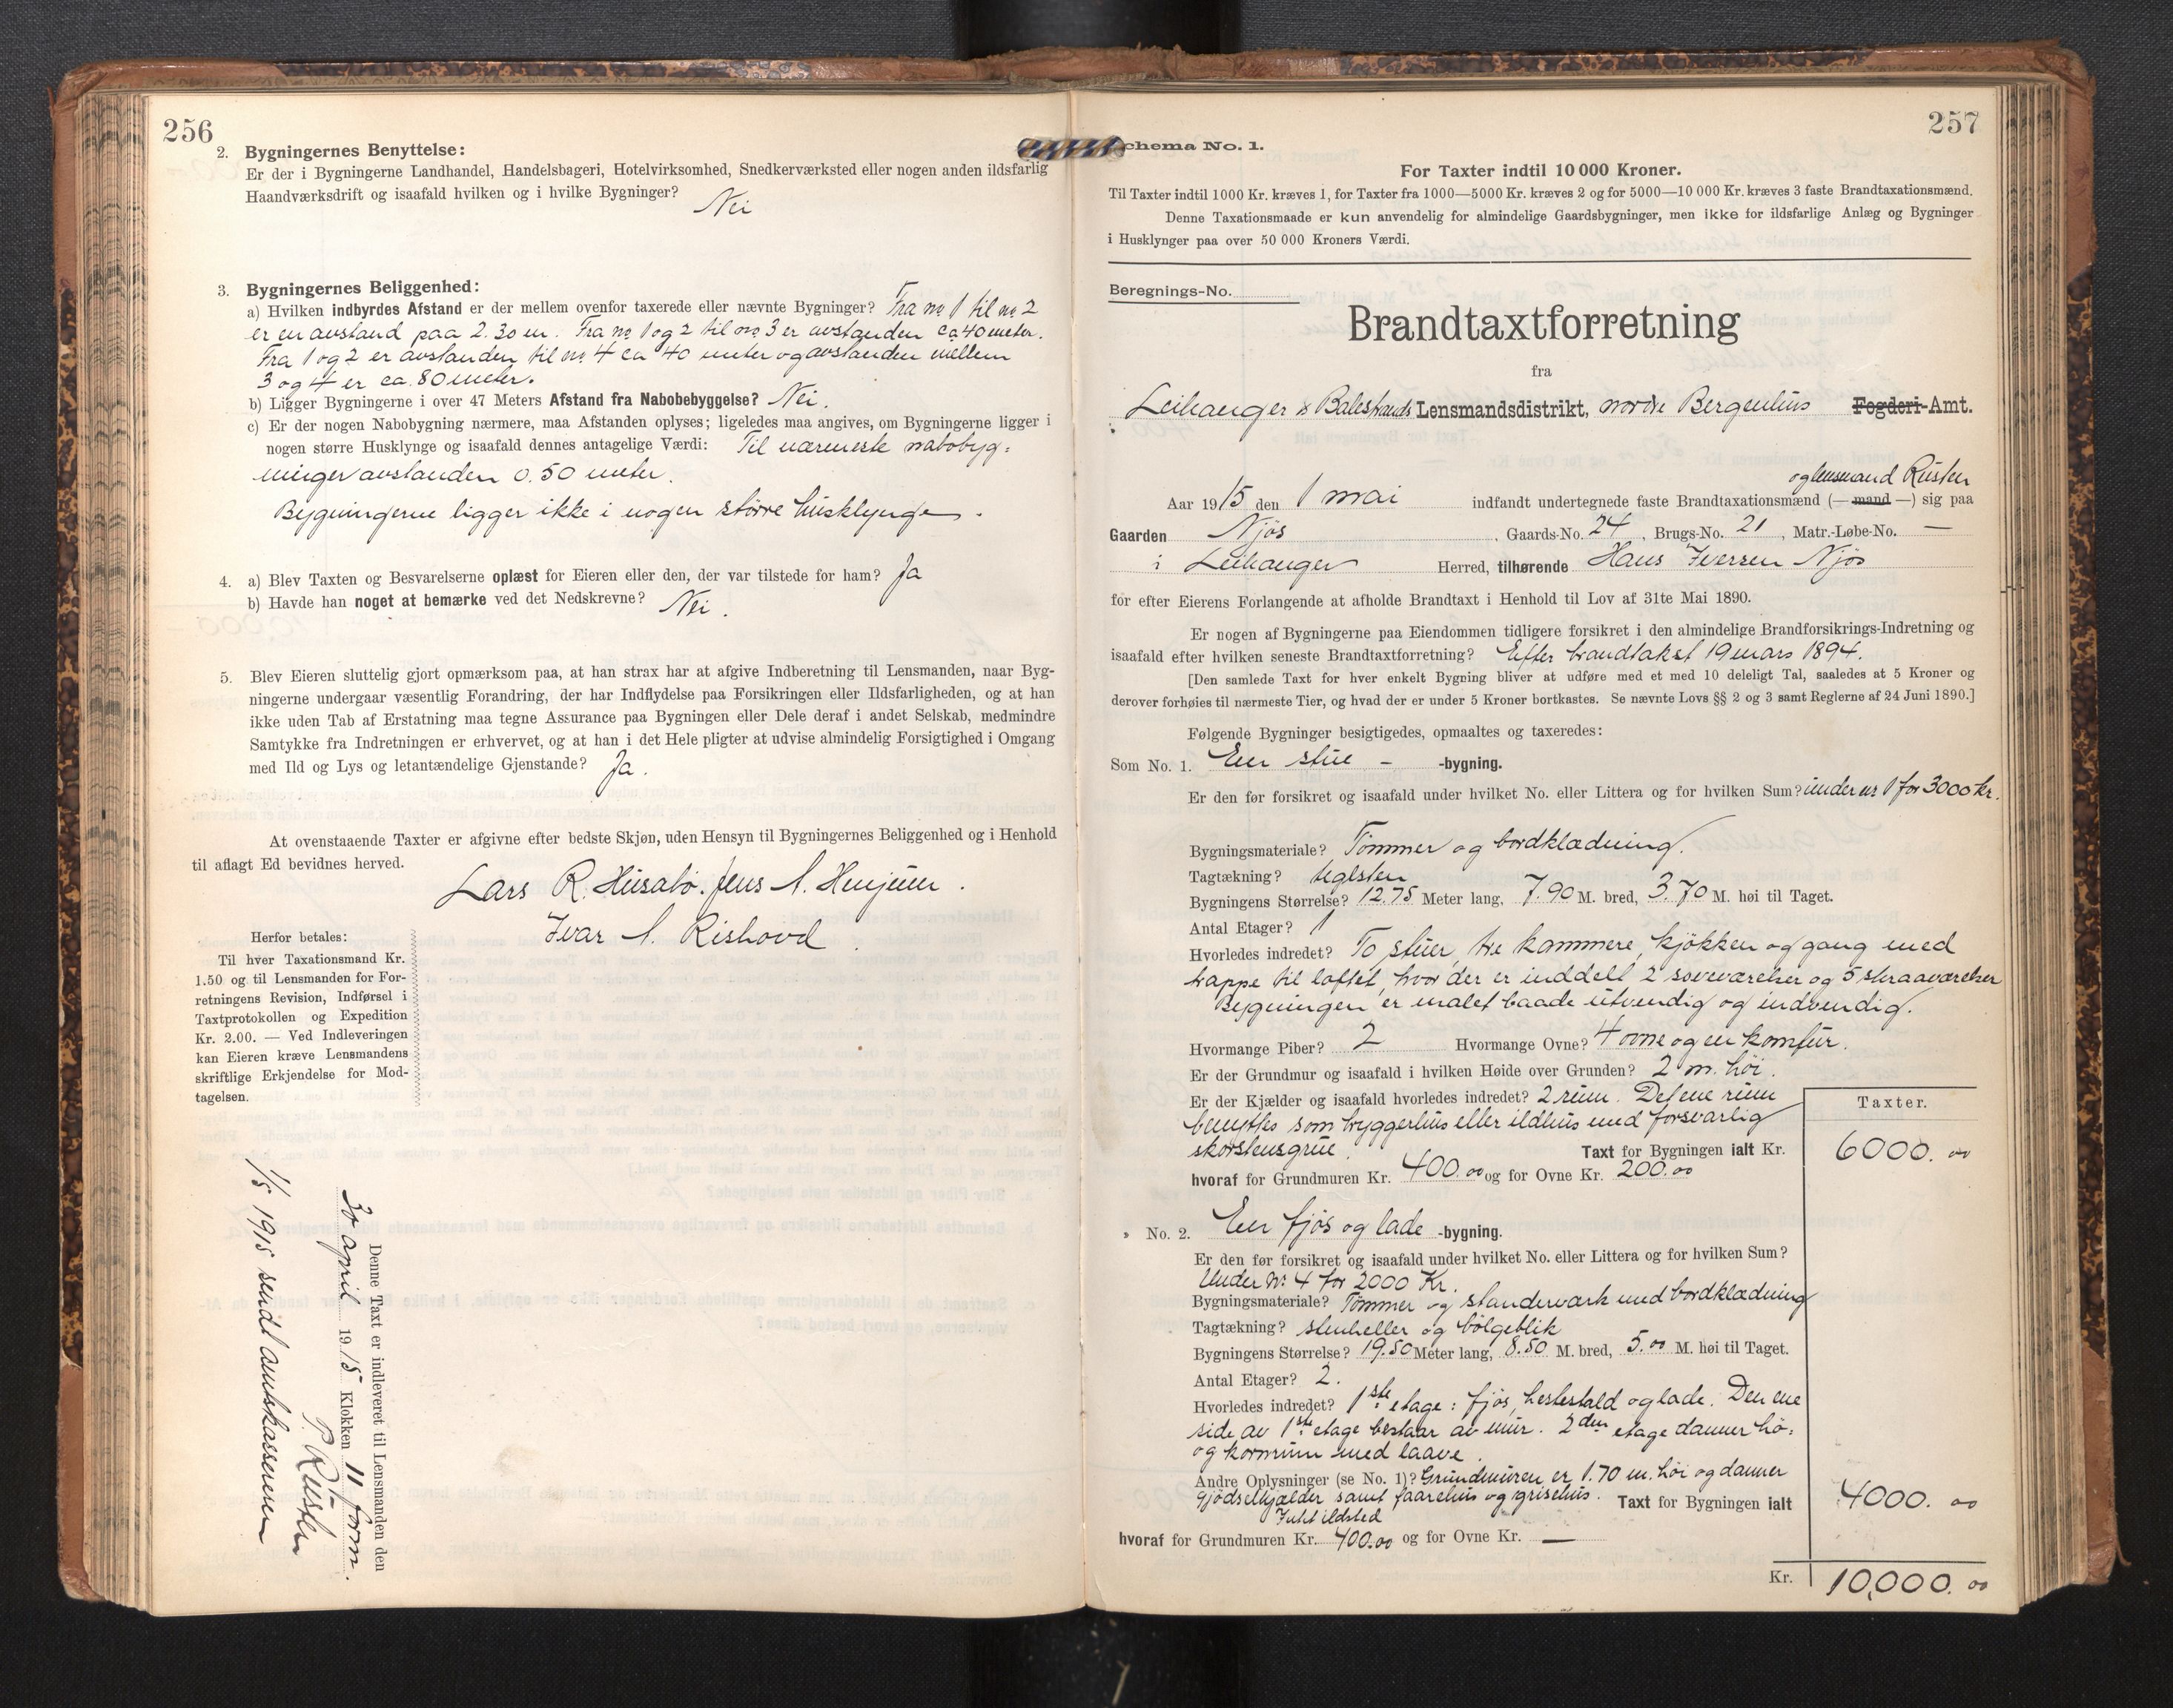 256
2. Bygningernes Benyttelse:
Er der i Bygningerne Landhandel, Handelsbageri, Hotelvirksomhed, Snedkerværksted eller nogen anden ildsfarlig
Haandværksdrift og isaafald hvilken og i hvilke Bygninger? Nei
3. Bygningernes Beliggenhed:
a) Hvilken indbyrdes Afstand er der mellem ovenfor taxerede eller nævnte Bygninger? Fra no 1 til no 2
er en avstand paa 2.30 m. Fra no 1 og 2 til no 3 er avstanden ca 40 meter.
Fra 1 og 2 er avstanden til no 4 ca 40 meter og avstanden mellem
3 og 4 er ca. 80 meter.
b) Ligger Bygningerne i over 47 Meters Afstand fra Nabobebyggelse? Nei.
c) Er der nogen Nabobygning nærmere, maa Afstanden oplyses; ligeledes maa angives, om Bygningerne ligger i
nogen større Husklynge og isaafald dennes antagelige Værdi: Til nærmeste nabobyg-
ninger avstanden 0.50 meter.
Bygningerne ligger ikke i nogen större husklynge.
4. a) Blev Taxten og Besvarelserne oplæst for Eieren eller den, der var tilstede for ham? Ja
b) Havde han noget at bemærke ved det Nedskrevne? Nei.
5. Blev Eieren sluttelig gjort opmærksom paa, at han strax har at afgive Indberetning til Lensmanden, naar Byg-
ningerne undergaar væsentlig Forandring, der har Indflydelse paa Forsikringen eller Ildsfarligheden, og at han
ikke uden Tab af Erstatning maa tegne Assurance paa Bygningen eller Dele deraf i andet Selskab, medmindre
Samtykke fra Indretningen er erhvervet, og at han i det Hele pligter at udvise almindelig Forsigtighed i Omgang
med Ild og Lys og letantændelige Gjenstande? Ja.
At ovenstaaende Taxter er afgivne efter bedste Skjøn, uden Hensyn til Bygningernes Beliggenhed og i Henhold
til aflagt Ed bevidnes herved.
Lars R. Husabö. Jens A. Henjum.
Ivar A. Rishovd.
Herfor betales:
Til hver Taxationsmand Kr.
1.50 og til Lensmanden for For-
retningens Revision, Indførsel i
Taxtprotokollen og Expedition
Kr. 2.00. — Ved Indleveringen
kan Eieren kræve Lensmandens
skriftlige Erkjendelse for Mod-
tagelsen.
Denne Taxt er indleveret til Lensmanden den
30 april 1915 Klokken 11 form.
P. Rusten
1/5 1915 sendt amtskassereren
257
chema No. 1.
For Taxter indtil 10 000 Kroner.
Til Taxter indtil 1000 Kr. kræves 1, for Taxter fra 1000—5000 Kr. kræves 2 og for 5000—10 000 Kr. kræves 3 faste Brandtaxationsmænd.
Denne Taxationsmaade er kun anvendelig for almindelige Gaardsbygninger, men ikke for ildsfarlige Anlæg og Bygninger
i Husklynger paa over 50 000 Kroners Værdi.
Beregnings-No.
Brandtaxtforretning
fra
Leikanger & Balestrands Lensmandsdistrikt, nordre Bergenhus Fogderi-Amt.
og lensmand Rusten
Aar 1915 den 1 mai indfandt undertegnede faste Brandtaxationsmænd (— mand —) sig paa
Gaarden Njös, Gaards-No. 24, Brugs-No. 21, Matr.-Løbe-No. —
i Leikanger Herred, tilhørende Hans Iversen Njös
for efter Eierens Forlangende at afholde Brandtaxt i Henhold til Lov af 31te Mai 1890.
Er nogen af Bygningerne paa Eiendommen tidligere forsikret i den almindelige Brandforsikrings-Indretning og
isaafald efter hvilken seneste Brandtaxtforretning? Efter brandtakst 19 mars 1894.
[Den samlede Taxt for hver enkelt Bygning bliver at udføre med et med 10 deleligt Tal, saaledes at 5 Kroner og
derover forhøies til nærmeste Tier, og hvad der er under 5 Kroner bortkastes. Se nævnte Lovs §§ 2 og 3 samt Reglerne af 24 Juni 1890.]
Følgende Bygninger besigtigedes, opmaaltes og taxeredes:
Som No. 1. Een stue - -bygning.
Er den før forsikret og isaafald under hvilket No. eller Littera og for hvilken Sum? under nr 1 for 3000 kr.
Bygningsmateriale? Tömmer og bordklædning.
Tagtækning? teglsten
Bygningens Størrelse? 12.75 Meter lang, 7.90 M. bred, 3.70 M. høi til Taget.
Antal Etager? 1
Hvorledes indredet? To stuer, tre kammere, kjökken og gang med
trappe til loftet, hvor der er inddelt 2 soveværelser og 5 skraaværelser
Bygningen er malet baade utvendig og indvendig.
Hvormange Piber? 2 Hvormange Ovne? 4 ovne og en komfur.
Er der Grundmur og isaafald i hvilken Høide over Grunden? 2 m. höi.
Er der Kjælder og isaafald hvorledes indredet? 2 rum. Det ene rum
benyttes som bryggerhus eller ildhus med forsvarlig
skorstensgrue. Taxt for Bygningen ialt Kr.
Taxter.
6000. 00
hvoraf for Grundmuren Kr. 400.00 og for Ovne Kr. 200.00
" No. 2. Een fjös og lade -bygning.
Er den før forsikret og isaafald under hvilket No. eller Littera og for hvilken Sum?
Under No. 4 for 2000 Kr.
Bygningsmateriale? Tömmer og standerværk med bordklædning
Tagtækning? stenheller og bölgeblik
Bygningens Størrelse? 19.50 Meter lang, 8.50 M. bred, 5.00 M. høi til Taget.
Antal Etager? 2.
Hvorledes indredet? 1ste etage: fjös, hestestald og lade. Den ene
side av 1ste etage bestaar av mur. 2den etage danner hö-
og kornrum med laave.
Andre Oplysninger (se No. 1)? Grundmuren er 1.70 m. höi og danner
gjödselkjælder samt faarehus og grisehus. Taxt for Bygningen ialt
4000. 00
Intet ildsted
hvoraf for Grundmuren Kr. 400.00 og for Ovne Kr. —
Kr. 10,000. 00